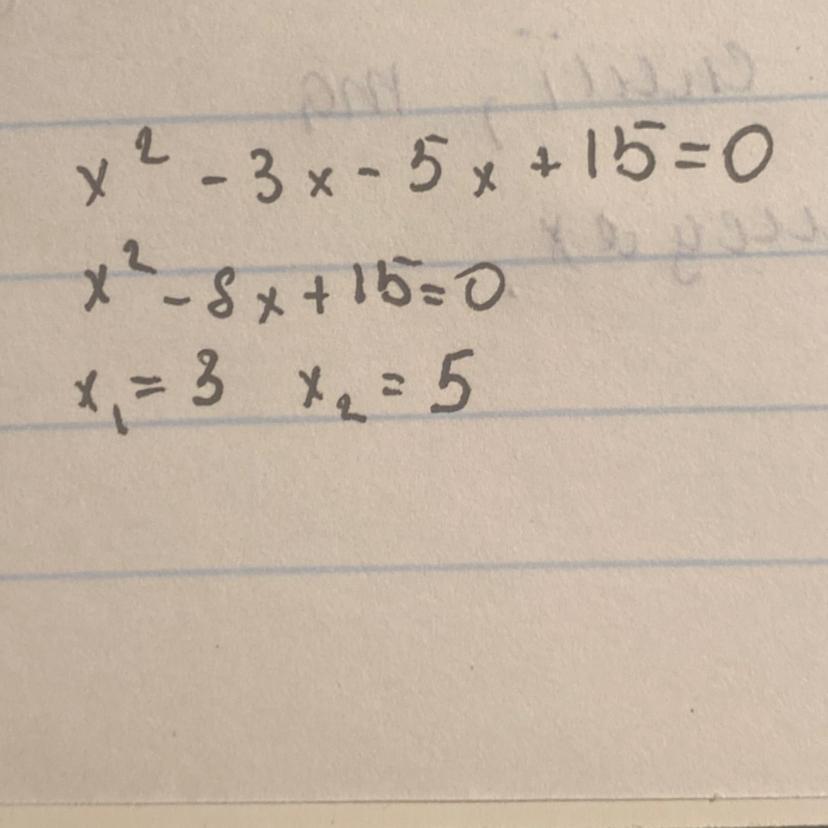 x² - 3x - 5x + 15 = 0
x² - 8x + 15 = 0
x₁ = 3 x₂ = 5